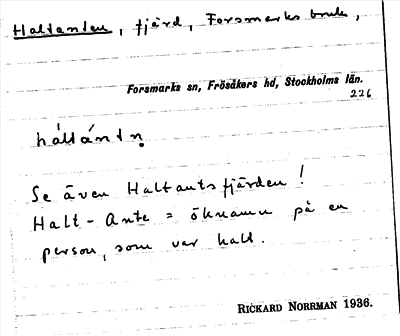 Haltanten, fjärd, Forsmarks bruk,
Forsmarks sn, Frösåkers hd, Stockholms län.
226
hàltántn̥
Se även Haltantsfjärden!
Halt-Ante = öknamn på en
person, som var halt.
RICKARD NORRMAN 1936.